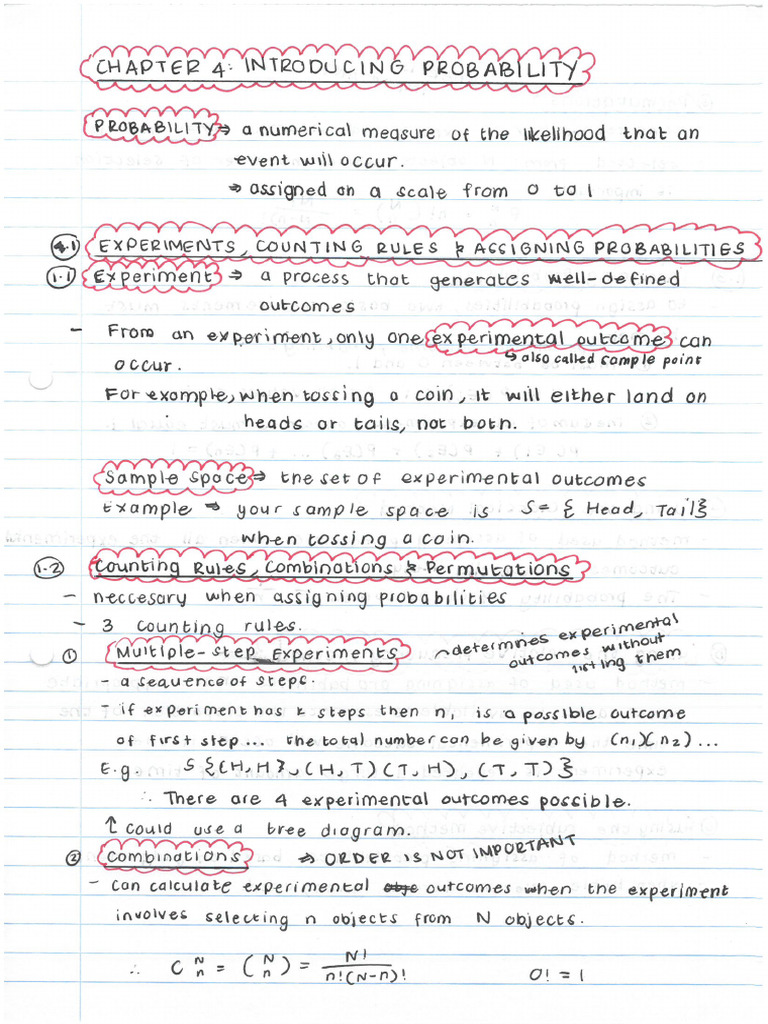 CHAPTER 4: INTRODUCING PROBABILITY
PROBABILITY → a numerical measure of the likelihood that an
event will occur.
→ assigned on a scale from 0 to 1
4.1 EXPERIMENTS, COUNTING RULES & ASSIGNING PROBABILITIES
1.1 Experiment → a process that generates well-defined
outcomes
- From an experiment, only one experimental outcome can
↳ also called sample point
occur.
For example, when tossing a coin, it will either land on
heads or tails, not both.
Sample Space → the set of experimental outcomes
Example → your sample space is S = { Head, Tail}
when tossing a coin.
1.2 Counting Rules, Combinations & Permutations
- neccesary when assigning probabilities
- 3 counting rules.
① Multiple-step Experiments
- determines experimental
outcomes without
listing them
- a sequence of steps.
- if experiment has k steps then n, is a possible outcome
of first step... the total number can be given by (n₁)(n₂)...
E.g S {(H,H), (H,T)(T,H), (T,T)}
∴ There are 4 experimental outcomes possible.
↑ could use a tree diagram.
② Combinations → ORDER IS NOT IMPORTANT
- can calculate experimental outcomes when the experiment
involves selecting n objects from N objects.
∴ C N n = (N n) = N! / n!(N-n)! 0! = 1